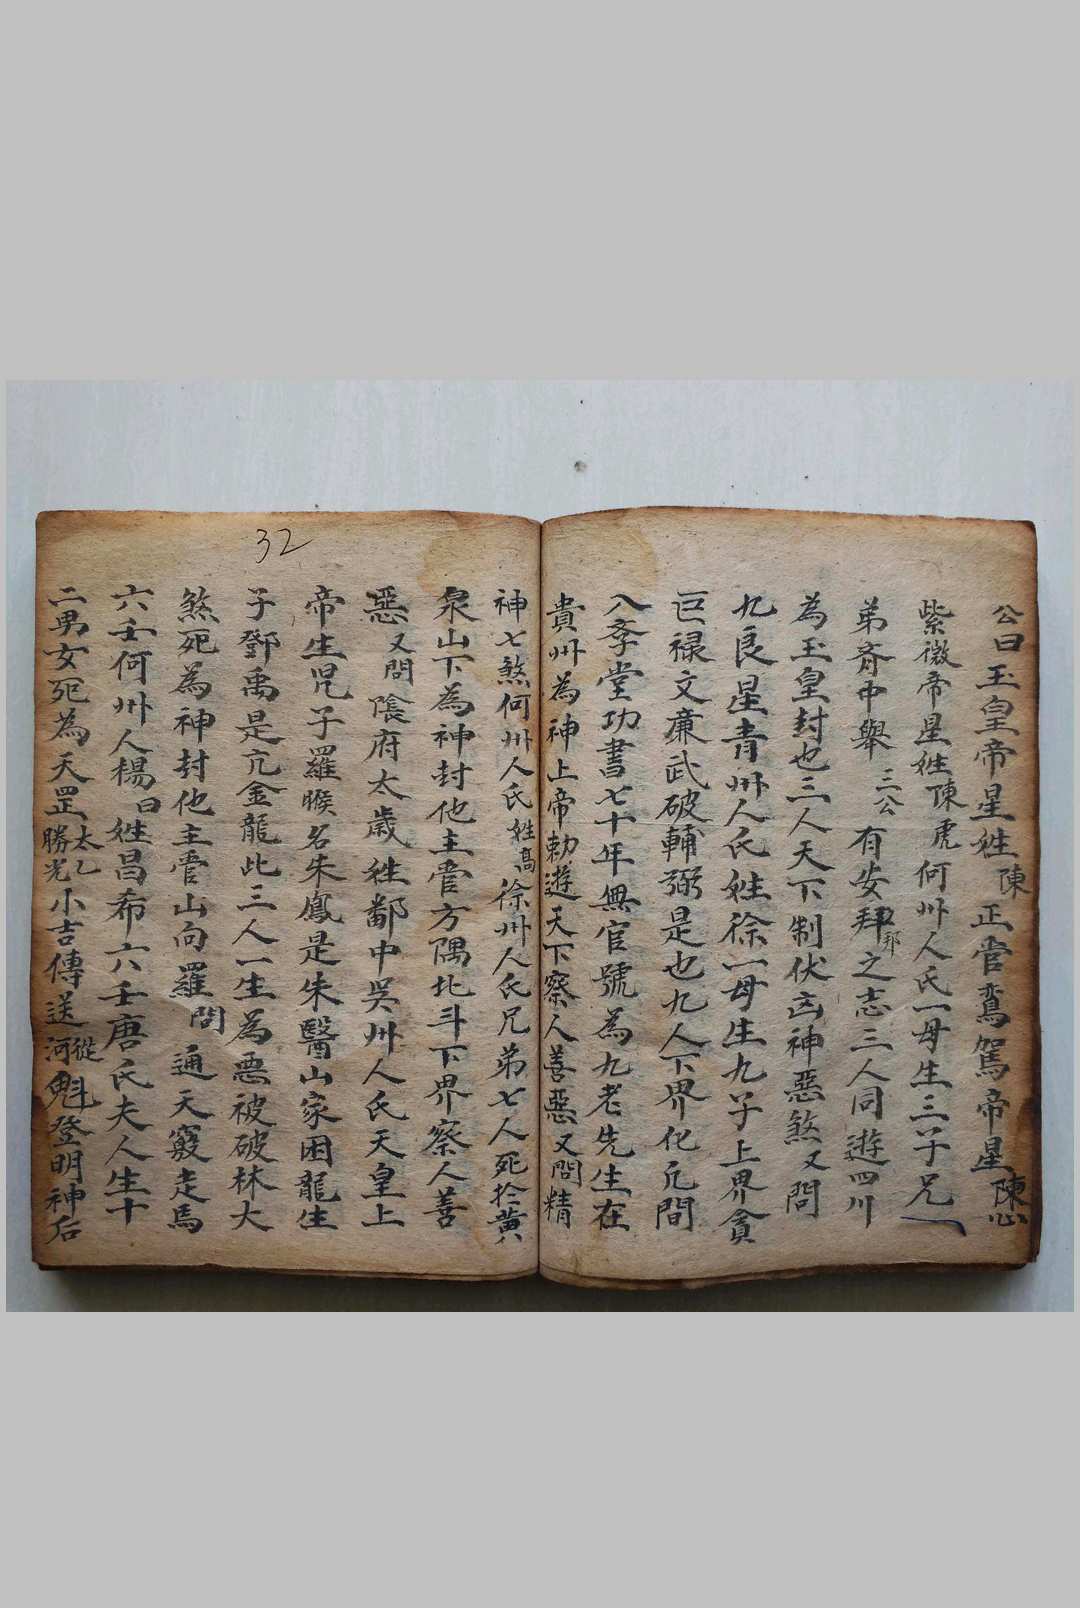 公曰玉皇帝星姓陳正官鸞駕帝星陳忠
紫微帝星姓陳虎何州人氏一母生三子兄
弟齊中舉三公有安邦拜之志三人同遊四川
為玉皇封也三人天下制伏凶神惡煞又問
九良星青州人氏姓徐一母生九子上界貪
巨祿文廉武破輔弼是也九人下界化凢間
入孝堂功書七十年無官號為九老先生在
貴州為神上帝勅遊天下察人善惡又問精
32
神七煞何州人氏姓高徐州人氏兄弟七人死於黄
泉山下為神封他主管方隅北斗下界察人善
惡又問陰府太歲姓鄒中吳州人氏天皇上
帝生児子羅睺名朱鳳是朱醫山家困龍生
子鄧禹是亢金龍此三人一生為惡被破林大
煞死為神封他主管山向羅問通天竅走馬
六壬何州人楊曰姓昌布六壬唐氏夫人生十
二男女死為天罡太乙勝光小吉傳送從河魁登明神后